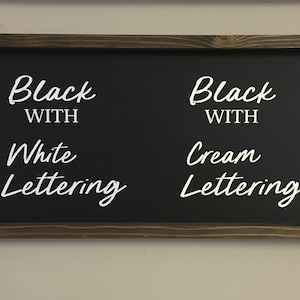 Black
WITH
White
Lettering
Black
WITH
Cream
Lettering